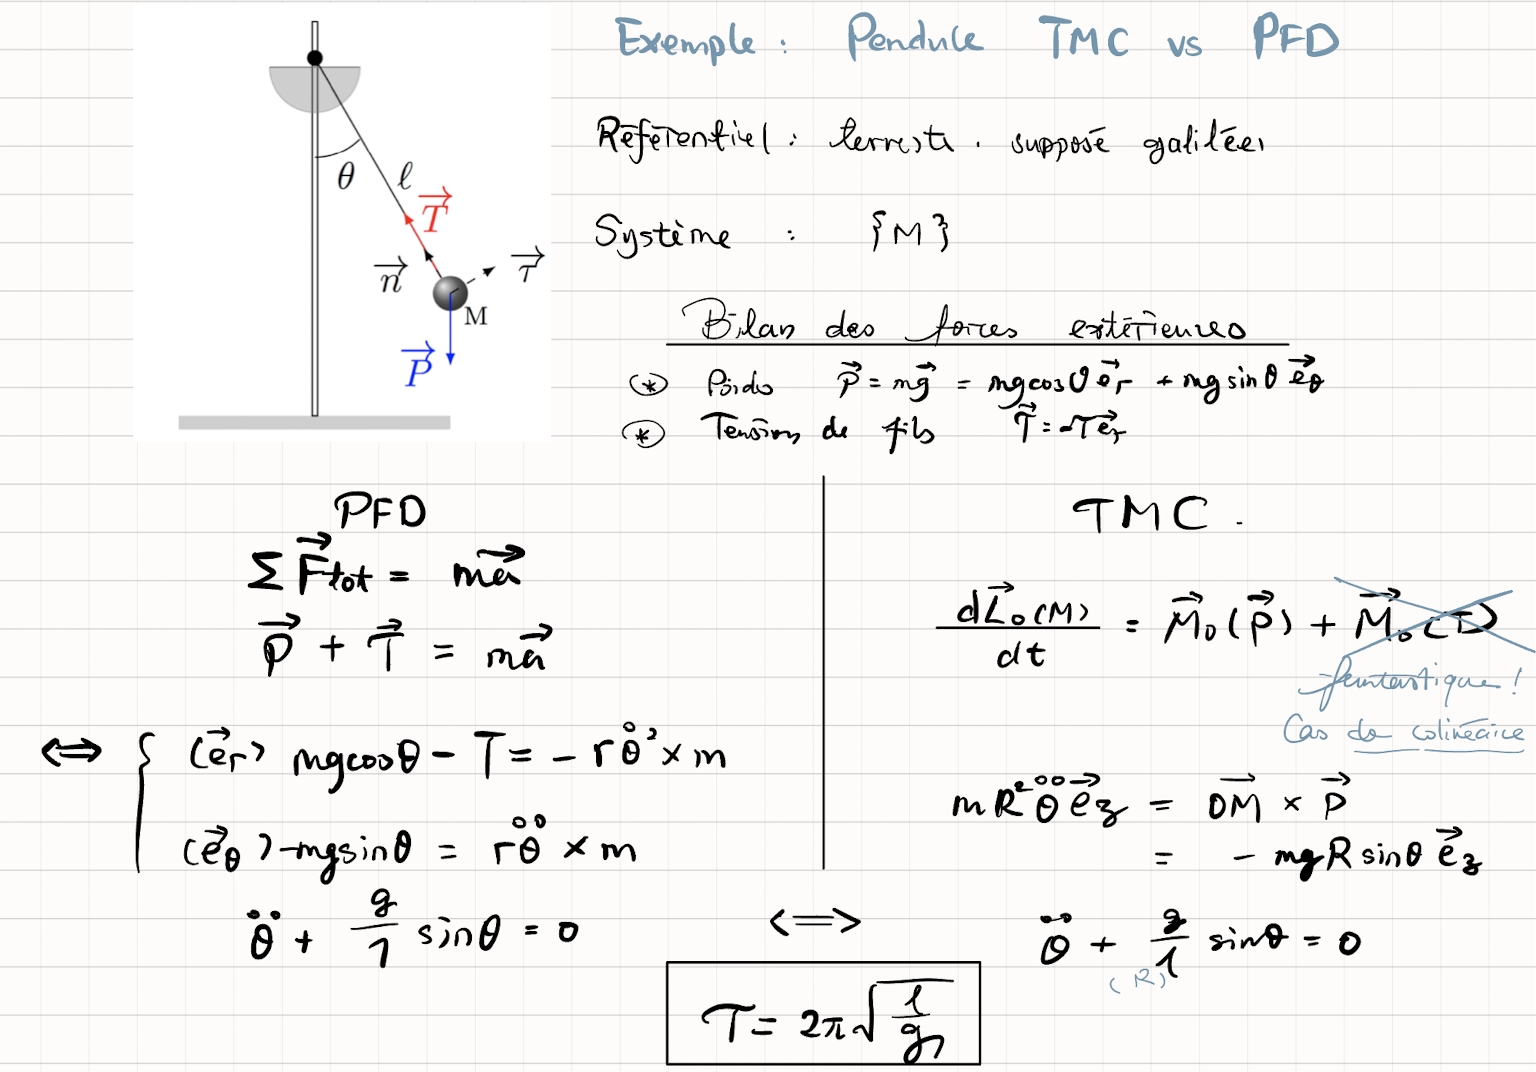 Exemple : Pendule TMC vs PFD
Référentiel : terrestr. supposé galiléen
Système : {M}
θ
ℓ
T⃗
n⃗
τ⃗
M
P⃗
Bilan des forces extérieures
(*) Poids P⃗ = mg⃗ = mg cosθ e⃗r + mg sinθ e⃗θ
(*) Tension de fils T⃗ = -T e⃗r
PFD
Σ F⃗tot = ma⃗
P⃗ + T⃗ = ma⃗
⟺ { (e⃗r) mg cosθ - T = - r θ̇² × m
(e⃗θ) -mg sinθ = r θ̈ × m
θ̈ + g/l sinθ = 0
TMC.
dL⃗o(M)/dt = M⃗o(P⃗) + M⃗o(T)
fantastique !
Cas de colinéaire
mR² θ̈ e⃗z = OM⃗ × P⃗
= - mgR sinθ e⃗z
⟺
θ̈ + g/l sinθ = 0
(R)
T = 2π√(l/g)